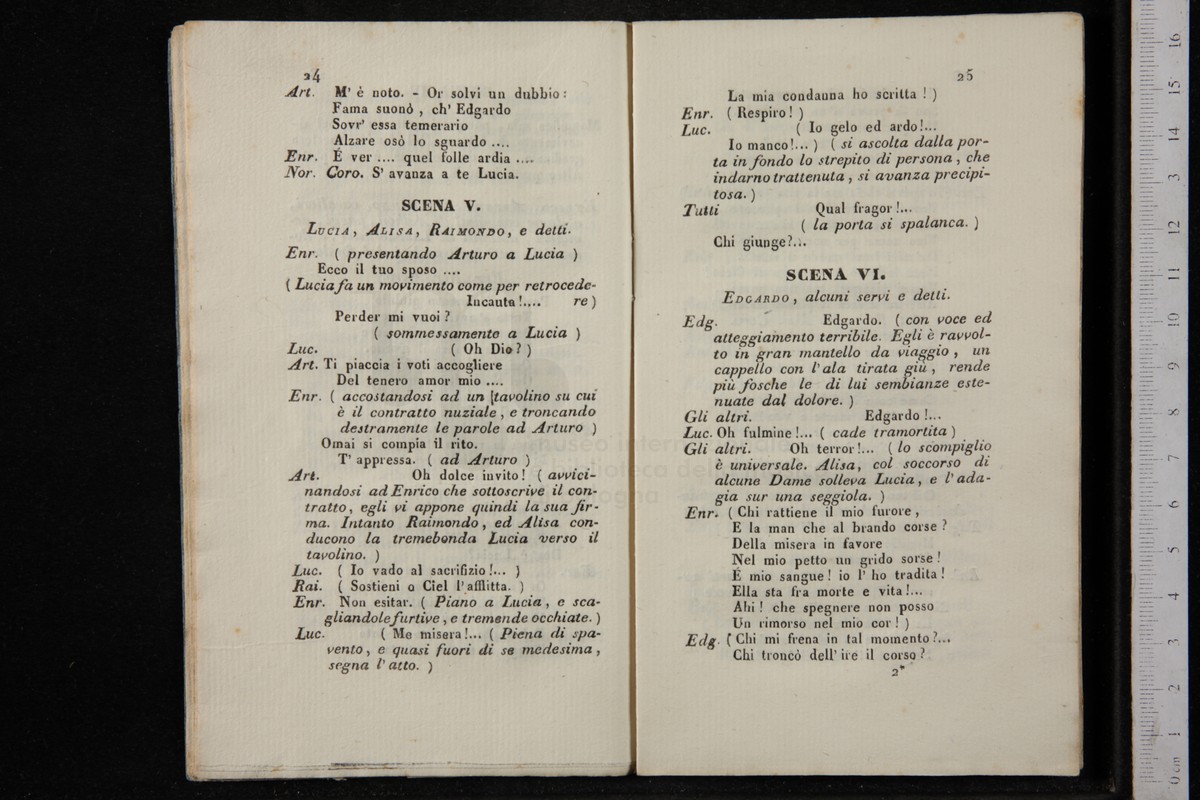 24
Art. M' è noto. - Or solvi un dubbio:
Fama suonò, ch' Edgardo
Sovr' essa temerario
Alzare osò lo sguardo ....
Enr. É ver .... quel folle ardia ....
Nor. Coro. S' avanza a te Lucia.
SCENA V.
LUCIA, ALISA, RAIMONDO, e detti.
Enr. ( presentando Arturo a Lucia )
Ecco il tuo sposo ....
( Lucia fa un movimento come per retrocede-
Incauta!.... re )
Perder mi vuoi?
( sommessamente a Lucia )
Luc. ( Oh Dio? )
Art. Ti piaccia i voti accogliere
Del tenero amor mio ....
Enr. ( accostandosi ad un [tavolino su cui
è il contratto nuziale, e troncando
destramente le parole ad Arturo )
Omai si compia il rito.
T' appressa. ( ad Arturo )
Art. Oh dolce invito! ( avvici-
nandosi ad Enrico che sottoscrive il con-
tratto, egli vi appone quindi la sua fir-
ma. Intanto Raimondo, ed Alisa con-
ducono la tremebonda Lucia verso il
tavolino. )
Luc. ( Io vado al sacrifizio!... )
Rai. ( Sostieni o Ciel l'afflitta. )
Enr. Non esitar. ( Piano a Lucia, e sca-
gliandole furtive, e tremende occhiate. )
Luc. ( Me misera!... ( Piena di spa-
vento, e quasi fuori di se medesima,
segna l' atto. )
25
La mia condanna ho scritta! )
Enr. ( Respiro! )
Luc. ( Io gelo ed ardo!...
Io manco!... ) ( si ascolta dalla por-
ta in fondo lo strepito di persona, che
indarno trattenuta, si avanza precipi-
tosa. )
Tutti Qual fragor!...
( la porta si spalanca. )
Chi giunge?...
SCENA VI.
EDGARDO, alcuni servi e detti.
Edg. Edgardo. ( con voce ed
atteggiamento terribile. Egli è ravvol-
to in gran mantello da viaggio, un
cappello con l' ala tirata giù, rende
più fosche le di lui sembianze este-
nuate dal dolore. )
Gli altri. Edgardo!...
Luc. Oh fulmine!... ( cade tramortita )
Gli altri. Oh terror!... ( lo scompiglio
è universale. Alisa, col soccorso di
alcune Dame solleva Lucia, e l' ada-
gia sur una seggiola. )
Enr. ( Chi rattiene il mio furore,
E la man che al brando corse?
Della misera in favore
Nel mio petto un grido sorse!
É mio sangue! io l' ho tradita!
Ella sta fra morte e vita!...
Ahi! che spegnere non posso
Un rimorso nel mio cor! )
Edg. ( Chi mi frena in tal momento?...
Chi troncò dell' ire il corso?
2*